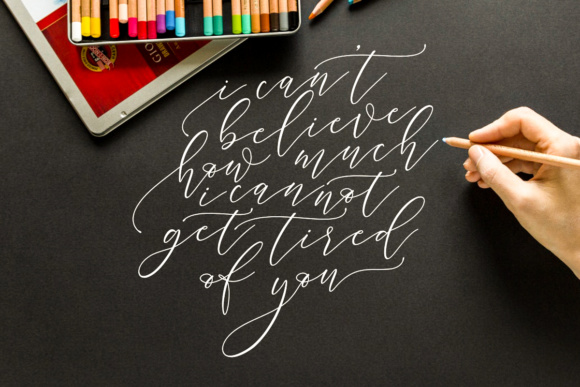 GIO
i can't
believe
how much
i cannot
get tired
of you